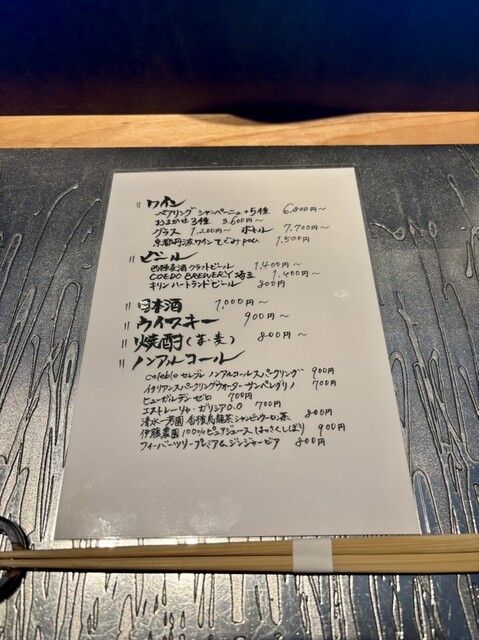 〃ワイン
ペアリング シャンパーニュ+5種 6,800円〜
おまかせ3種 3,600円〜
グラス 1,200円〜 ボトル 7,700円〜
京都丹波ワイン てぐみ 1,500円
〃ビール
西陣麦酒クラフトビール 1,400円〜
COEDO BREWERY 埼玉 1,400円〜
キリン ハートランドビール 800円
〃日本酒 1,000円〜
〃ウイスキー 900円〜
〃焼酎(芋・麦) 800円〜
〃ノンアルコール
celeblo セレブレ ノンアルコールスパークリング 900円
イタリアンスパークリングウォーター サンペレグリノ 700円
ヒューガルデン・ゼロ 700円
エストレーリャ・ガリシア0.0 700円
清水一芳園 香檳烏龍茶 シャンピンウーロン茶 800円
伊藤農園 100%ピュアジュース はっさくしぼり 900円
フィーバーツリープレミアムジンジャービア 800円